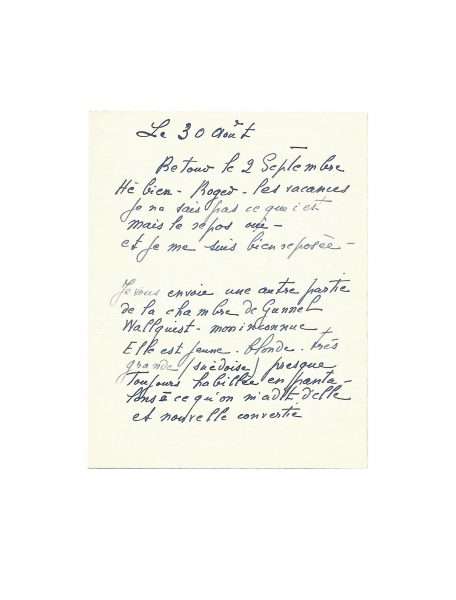 Le 30 Août
Retour le 2 Septembre
Hé bien - Roger - les vacances
je ne sais pas ce que c'est
mais le repos oui -
et je me suis bien reposée -
Je vous envoie une autre partie
de la chambre de Gunnel
Wallquist - mon inconnue
Elle est jeune - blonde - très
grande (suédoise) presque
toujours habillée en panta -
lons à ce qu'on m'a dit d'elle
et nouvelle convertie